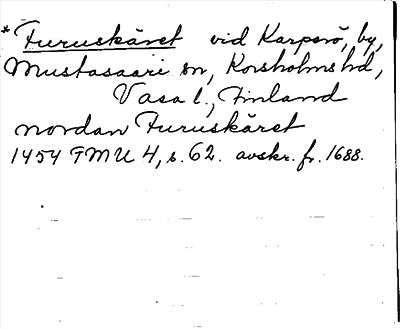 * Furuskäret vid Karperö, by,
Mustasaari sn, Korsholms hd,
Vasa l., Finland
nordan Furuskäret
1454 FMU 4, s. 62. avskr. fr. 1688.